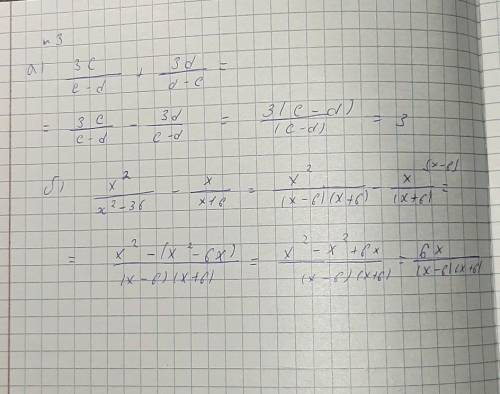 n 3
а) 3c/(c-d) + 3d/(d-c) =
= 3c/(c-d) - 3d/(c-d) = 3(c-d)/(c-d) = 3
б) x²/(x²-36) - x/(x+6) = x²/((x-6)(x+6)) - x^{(x-6)}/(x+6) =
= (x²-(x²-6x))/((x-6)(x+6)) = (x²-x²+6x)/((x-6)(x+6)) = 6x/((x-6)(x+6))